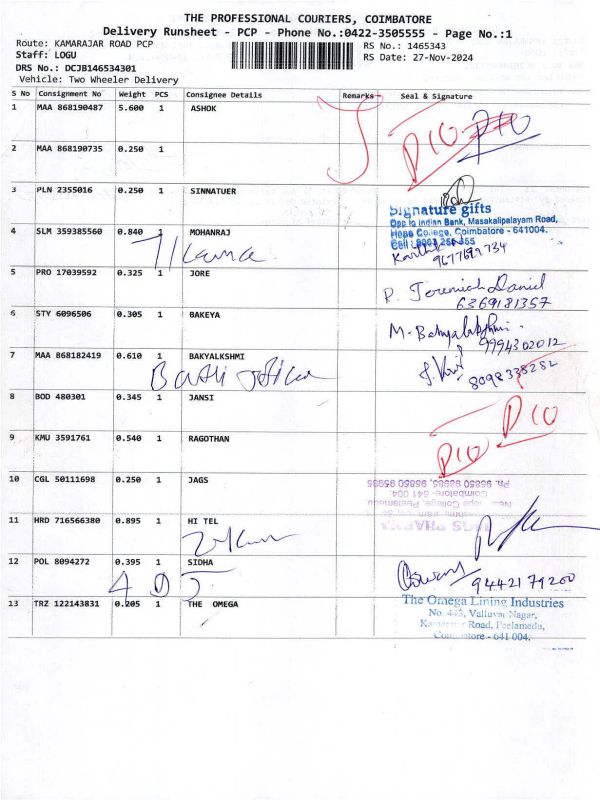 THE PROFESSIONAL COURIERS, COIMBATORE
Delivery Runsheet - PCP - Phone No.:0422-3505555 - Page No.:1
Route: KAMARAJAR ROAD PCP RS No.: 1465343
Staff: LOGU RS Date: 27-Nov-2024
DRS No.: DCJB146534301
Vehicle: Two Wheeler Delivery
S No Consignment No Weight PCS Consignee Details Remarks Seal & Signature
1 MAA 868190487 5.600 1 ASHOK
D10 D10
2 MAA 868190735 0.250 1
3 PLN 2355016 0.250 1 SINNATUER
Signature gifts
Opp to Indian Bank, Masakalipalayam Road,
Hope College, Coimbatore - 641004.
4 SLM 359385560 0.840 1 MOHANRAJ
9677699734
5 PRO 17039592 0.325 1 JORE
P. Jeremiah Daniel
6369181357
6 STY 6096506 0.305 1 BAKEYA
9994302012
7 MAA 868182419 0.610 1 BAKYALKSHMI
8098338282
8 BOD 480301 0.345 1 JANSI
D10
9 KMU 3591761 0.540 1 RAGOTHAN
D10
10 CGL 50111698 0.250 1 JAGS
Ph. 95850 98985
Coimbatore- 641 004.
11 HRD 716566380 0.895 1 HI TEL
12 POL 8094272 0.395 1 SIDHA
9442179200
13 TRZ 122143831 0.205 1 THE OMEGA
The Omega Lining Industries
Valluvar Nagar,
Road, Peelamedu,
Coimbatore - 641 004.